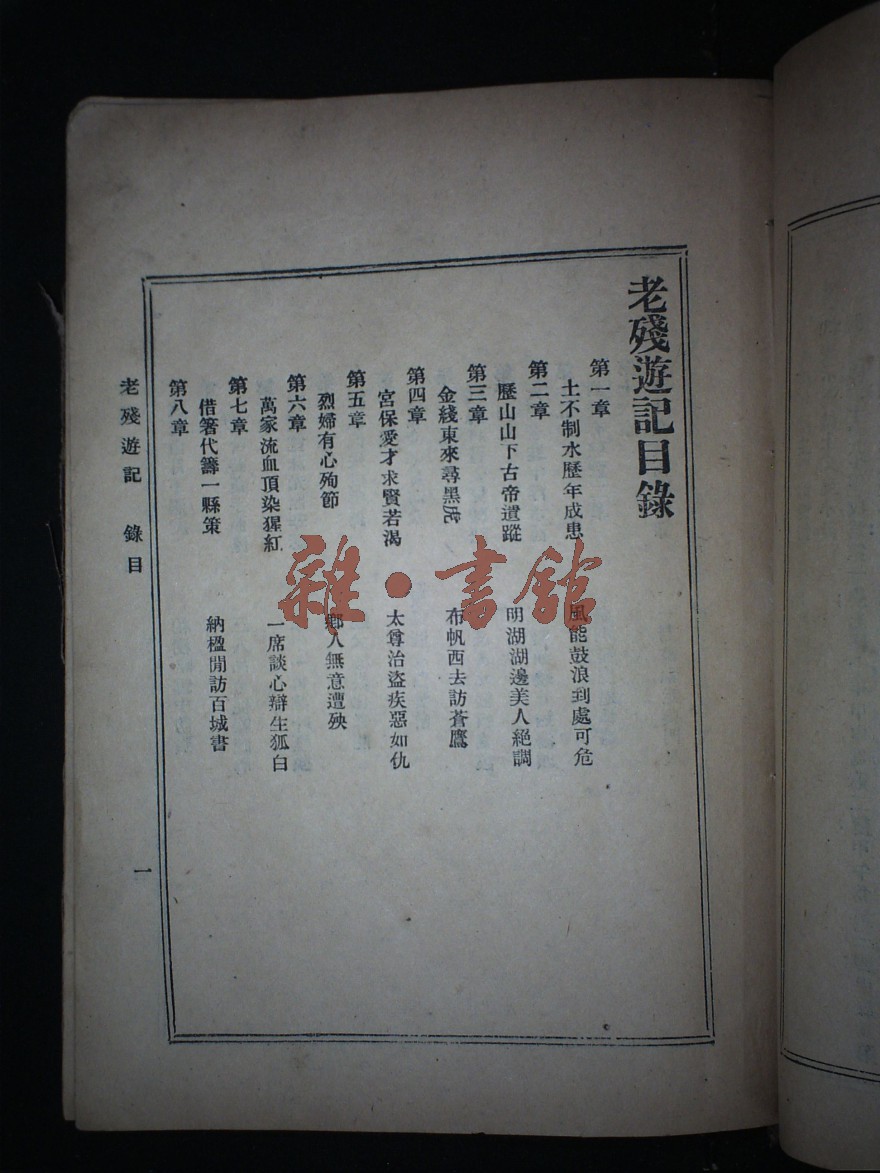 老殘遊記目錄
第一章
土不制水歷年成患 風能鼓浪到處可危
第二章
歷山山下古帝遺蹤 明湖湖邊美人絕調
第三章
金綫東來尋黑虎 布帆西去訪蒼鷹
第四章
宮保愛才求賢若渴 太尊治盜疾惡如仇
第五章
烈婦有心殉節 鄉人無意遭殃
第六章
萬家流血頂染猩紅 一席談心辯生狐白
第七章
借箸代籌一縣策 納楹閒訪百城書
第八章
老殘遊記 錄目
一
雜·書館